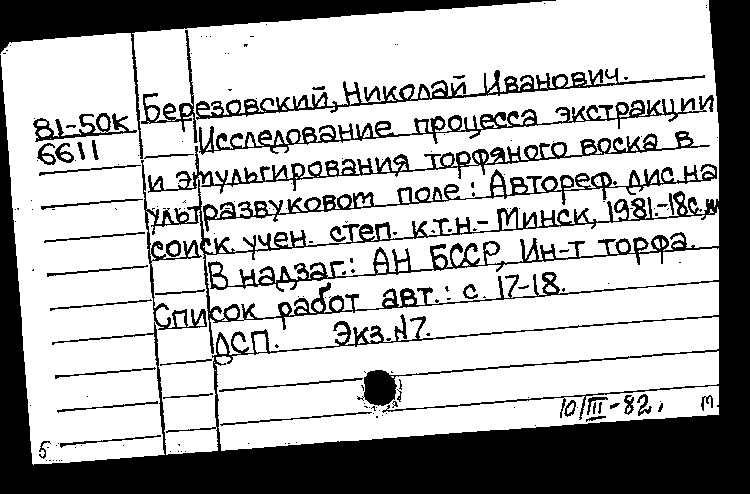 Березовский, Николай Иванович.
81-50к
6611
Исследование процесса экстракции
и эмульгирования торфяного воска в
ультразвуковом поле: Автореф. дис. на
соиск. учен. степ. к.т.н.- Минск, 1981.-18с.,
В надзаг.: АН БССР, Ин-т торфа.
Список работ авт.: с. 17-18.
ДСП. Экз.№7.
10/III-82. м.
5